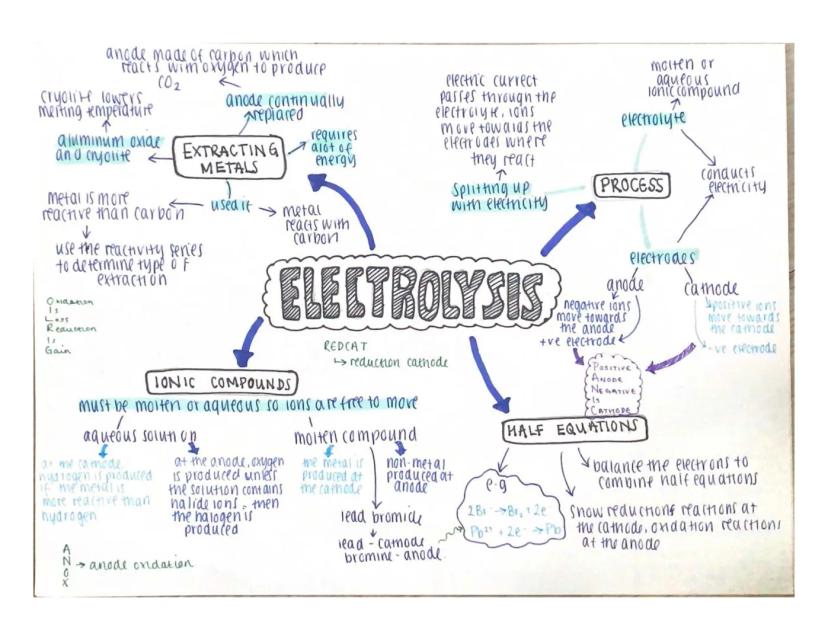 anode made of carbon which
reacts with oxygen to produce
CO2
cryolite lowers
melting temperature
anode continually
replaced
aluminum oxide
and cryolite
EXTRACTING
METALS
requires
alot of
energy
metal is more
reactive than carbon
used if
metal
reacts with
carbon
use the reactivity series
to determine type of
extraction
electric currect
passes through the
electrolyte, ions
move towards the
electrodes where
they react
splitting up
with electricity
PROCESS
molten or
aqueous
ionic compound
electrolyte
conducts
electricity
electrodes
anode
cathode
negative ions
move towards
the anode
+ve electrode
positive ions
move towards
the cathode
-ve electrode
POSITIVE
ANODE
NEGATIVE
IS
CATHODE
ELECTROLYSIS
Oxidation
Is
Loss
Reduction
Is
Gain
REDCAT
↳ reduction cathode
IONIC COMPOUNDS
must be molten or aqueous so ions are free to move
aqueous solution
molten compound
at the cathode,
hydrogen is produced
if the metal is
more reactive than
hydrogen
at the anode, oxygen
is produced unless
the solution contains
halide ions, then
the halogen is
produced
the metal is
produced at
the cathode
non-metal
produced at
anode
lead bromide
lead - cathode
bromine - anode
A
N
O
X
→ anode oxidation
HALF EQUATIONS
e.g
2Br⁻ → Br₂ + 2e⁻
Pb²⁺ + 2e⁻ → Pb
balance the electrons to
combine half equations
show reductions reactions at
the cathode, oxidation reactions
at the anode